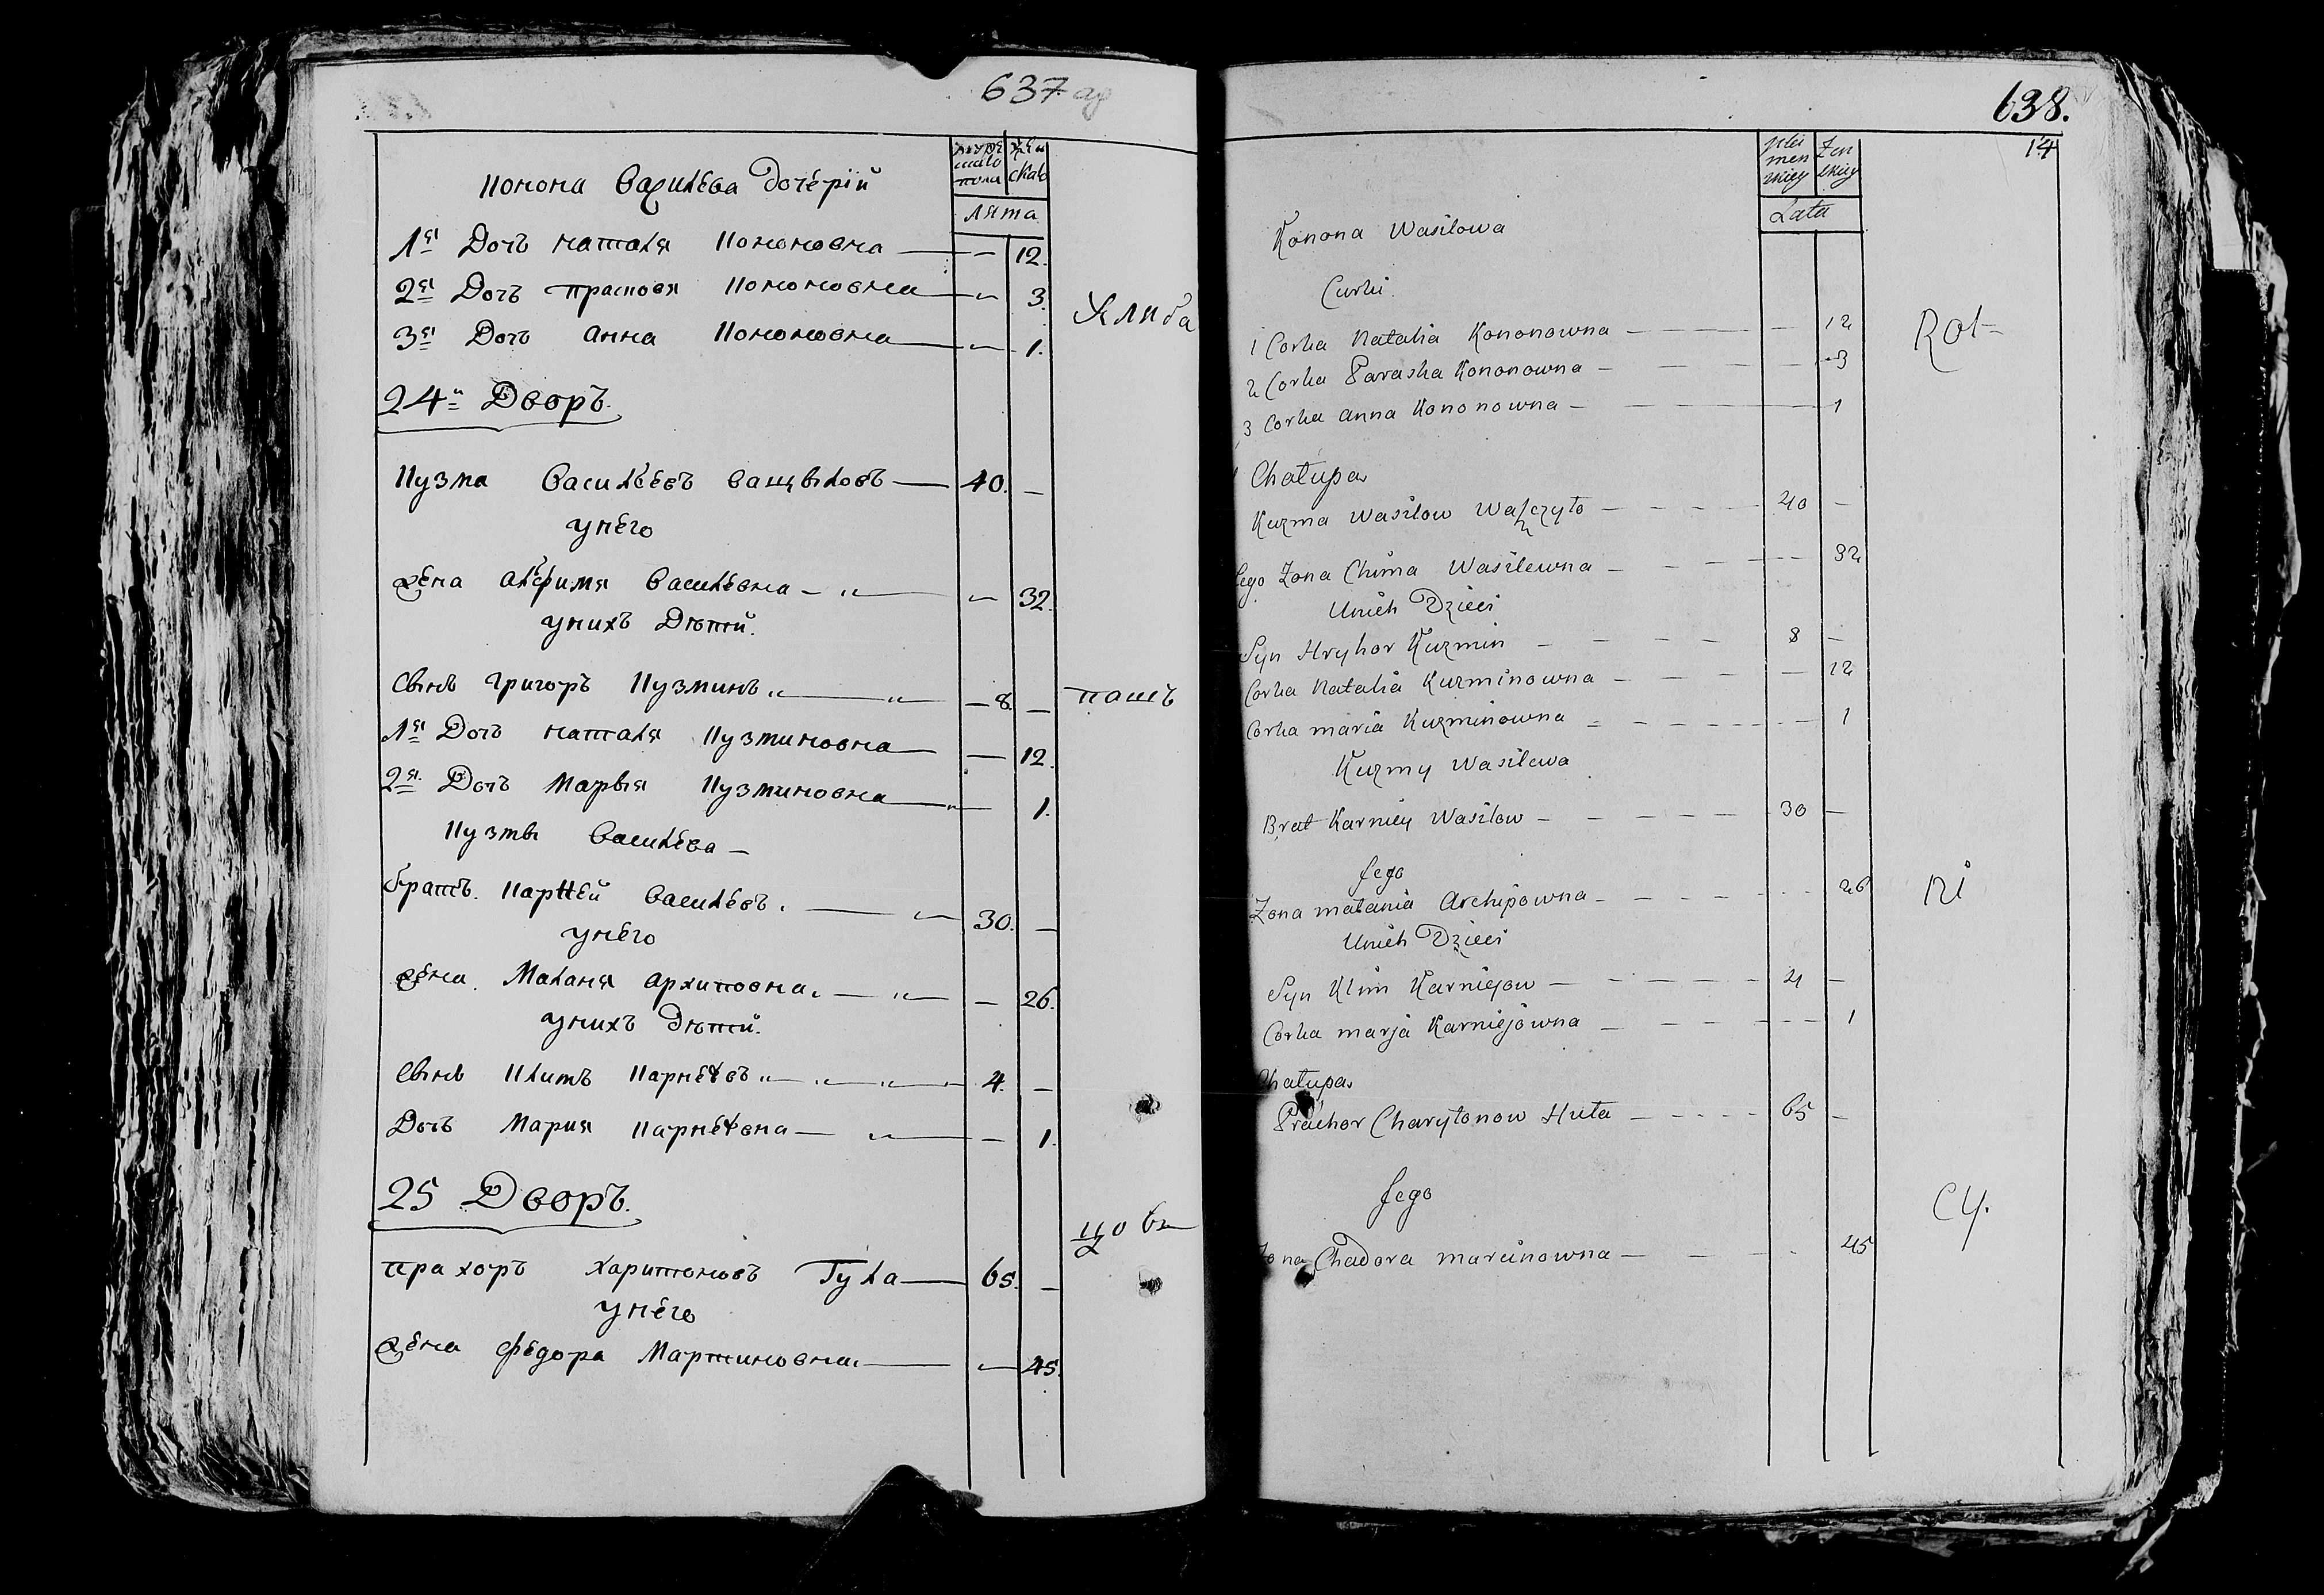 637
мужескаго пола
женскаго
лята
Конона Василева дочерій
1я Дочъ наталя Кононовна — — 12.
2я Дочъ прасковя Кононовна — 3.
3я Дочъ анна Кононовна — 1.
24й Дворъ.
Кузма Василёвъ Ващыловъ — 40. —
у нёго
жена Василёвна — 32.
у нихъ Дѣтей.
Сынъ григоръ Кузминъ — 8. —
1я Дочъ наталя Кузминовна — 12.
2я Дочъ Марыя Кузминовна — 1.
Кузмы Василёва —
братъ Карней Василёвъ. — 30. —
у нёго
жена Маланя архиповна. — — 26.
у нихъ дѣтей.
Сынъ Климъ Карнеевъ — 4. —
Дочъ Мария Карнеевна — — 1.
25 Дворъ.
прахоръ харитоновъ Гула — 65. —
у нёго
жена федора Мартиновна. — 45.
пашъ
638.
14
Męzkiey
Zenskiey
Lata
Konona Wasilowa
Curki.
1 Corka Natalia Kononowna — — 12
2 Corka Paraska Kononowna — — 3
3 Corka anna Kononowna — — 1
Chałupa
Kuzma Wasilow Waszczyło — 40 —
Jego Zona Chima Wasilewna — 32
Unich Dzieci
Syn Hryhor Kuzmin — 8 —
Corka Natalia Kuzminowna — — 12
Corka maria Kuzminowna — — 1
Kuzmy Wasilewa
Brat Karniey Wasilow — 30 —
Jego
Zona małania Archipowna — 26
Unich Dzieci
Syn Klim Karniejow — 4 —
Corka marja Karniejowna — 1
Chałupa
Prachor Charytonow Huła — 65 —
Jego
Zona Chadora marcinowna — 45